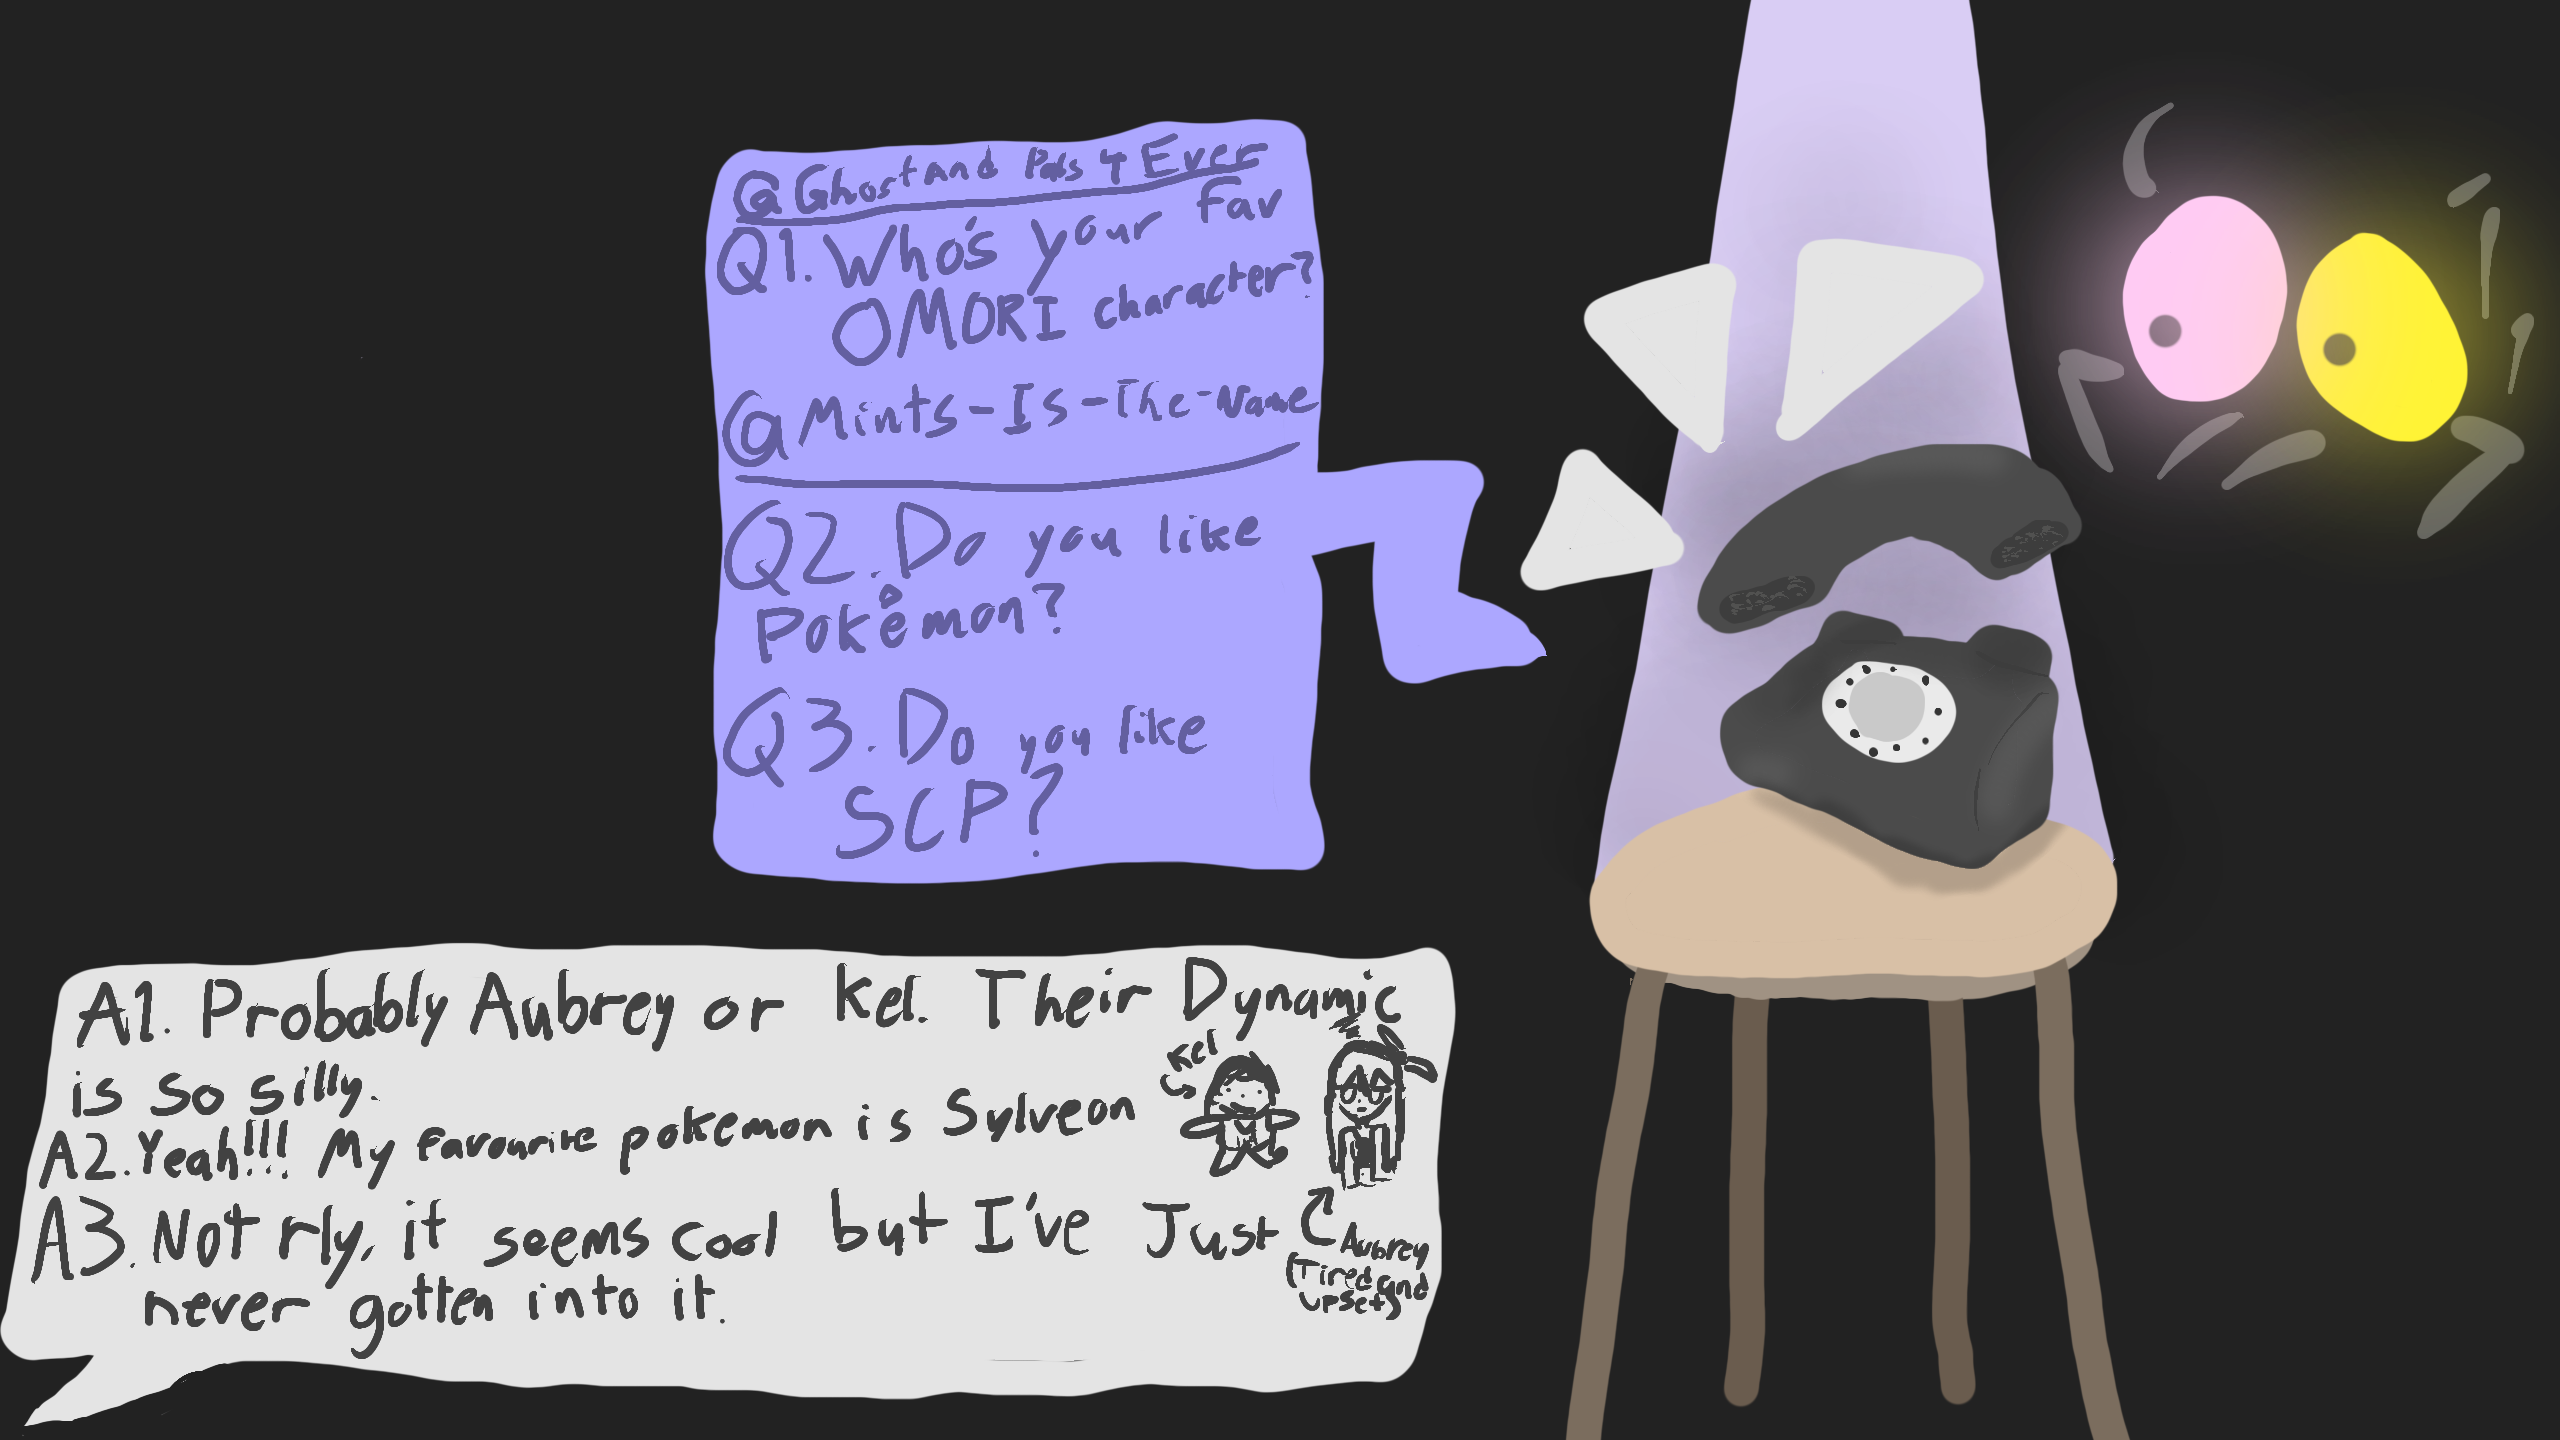 @GhostandPals4Ever
Q1. Who's your fav
OMORI character?
@Mints-Is-The-Name
Q2. Do you like
Pokêmon?
Q3. Do you like
SCP?
A1. Probably Aubrey or Kel. Their Dynamic
is so silly.
Kel
A2. Yeah!!! My favourite pokemon is Sylveon
A3. Not rly, it seems cool but I've Just
never gotten into it.
Aubrey
(Tired and
upset)